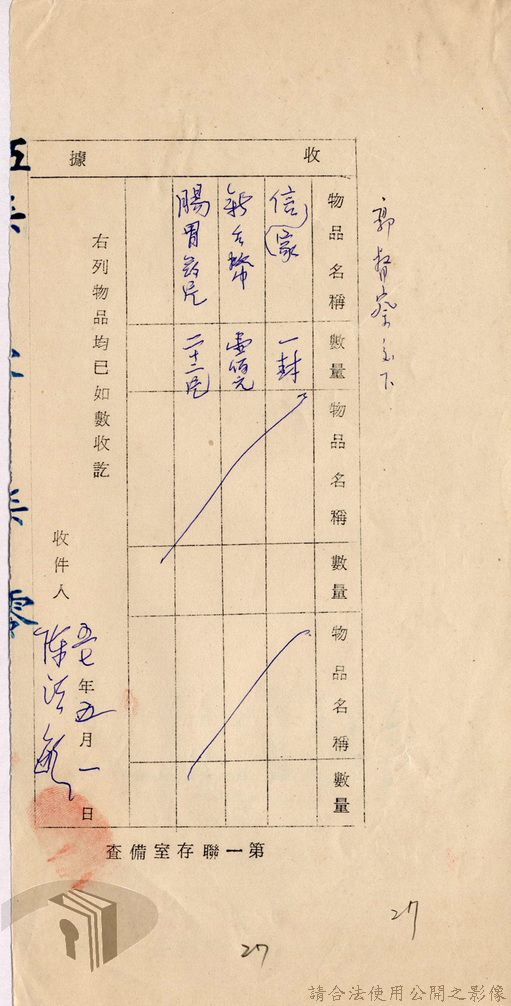 收據
物品名稱 數量 物品名稱 數量 物品名稱 數量
信(家) 一封
新台幣 壹佰元
腸胃藥片 二十二片
右列物品均已如數收訖
收件人
年五月一日
第一聯存室備查
27
27
請合法使用公開之影像